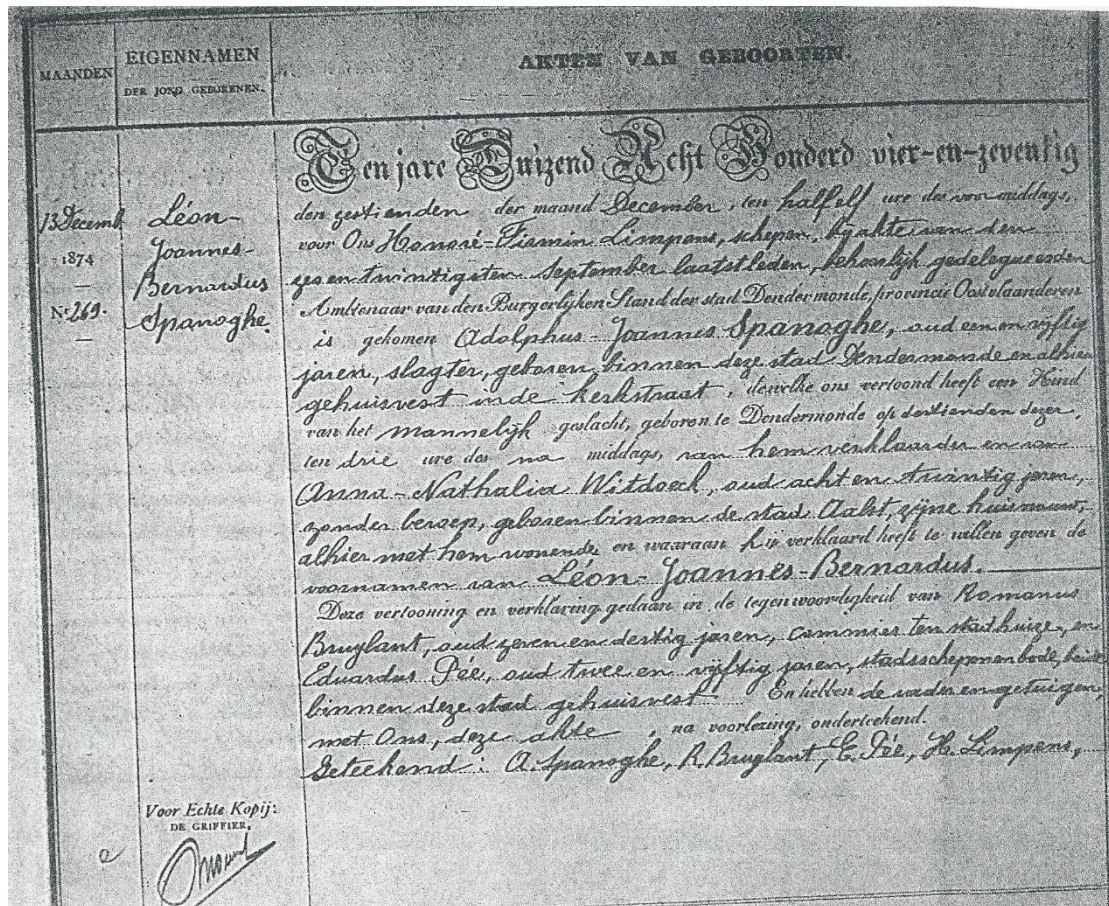 MAANDEN
EIGENNAMEN
DER JONG GEBORENEN.
AKTEN VAN GEBOORTEN.
13 Decemb
1874
—
Nr 269.
—
Léon-
Joannes-
Bernardus
Spanoghe.
Ten jare Duizend Acht Honderd vier-en-zeventig
den zestienden der maand December, ten half elf ure des voormiddags,
voor Ons Honoré-Firmin Limpens, schepen, by akte van den
zes en twintigsten September laatstleden, behoorlijk gedelegueerden
Ambtenaar van den Burgerlijken Stand der stad Dendermonde, provincie Oostvlaanderen
is gekomen Adolphus Joannes Spanoghe, oud een en vyftig
jaren, slagter, geboren binnen deze stad Dendermonde en alhier
gehuisvest in de Kerkstraat, dewelke ons vertoond heeft een Kind
van het mannelijk geslacht, geboren te Dendermonde op dertienden dezer,
ten drie ure des na middags, van hem verklaarder en van
Anna-Nathalia Witdoeck, oud acht en twintig jaren,
zonder beroep, geboren binnen de stad Aalst, zijne huisvrouw,
alhier met hem wonende en waaraan hy verklaard heeft te willen geven de
voornamen van Léon-Joannes-Bernardus.
Deze vertooning en verklaring gedaan in de tegenwoordigheid van Romanus
Bruylant, oud zeven en dertig jaren, commies ten stadhuize, en
Eduardus Pée, oud twee en vyftig jaren, stadsschepenen bode, beide
binnen deze stad gehuisvest En hebben de vader en getuigen,
met Ons, deze akte, na voorlezing, onderteekend.
Geteekend: A. Spanoghe, R. Bruylant, E. Pée, H. Limpens,
Voor Echte Kopij:
DE GRIFFIER,